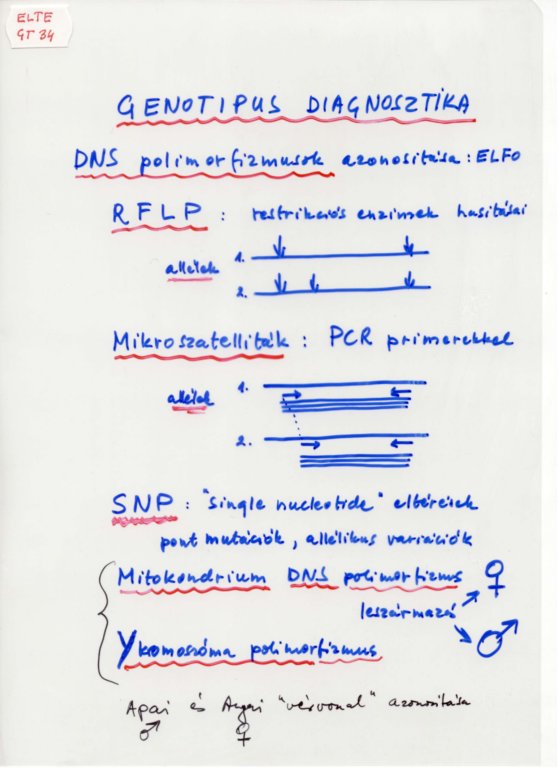 ELTE
GT 34
GENOTIPUS DIAGNOSZTIKA
DNS polimorfizmusok azonosítása : ELFO
RFLP : restrikciós enzimek hasításai
allélek
1.
2.
Mikroszatelliták : PCR primerekkel
allélek
1.
2.
SNP : "single nucleotide" eltérések
pont mutációk, allélikus variációk
Mitokondrium DNS polimorfizmus ♀
leszármazás
Y kromoszóma polimorfizmus ♂
Apai és Anyai "vérvonal" azonosítása
♂ ♀